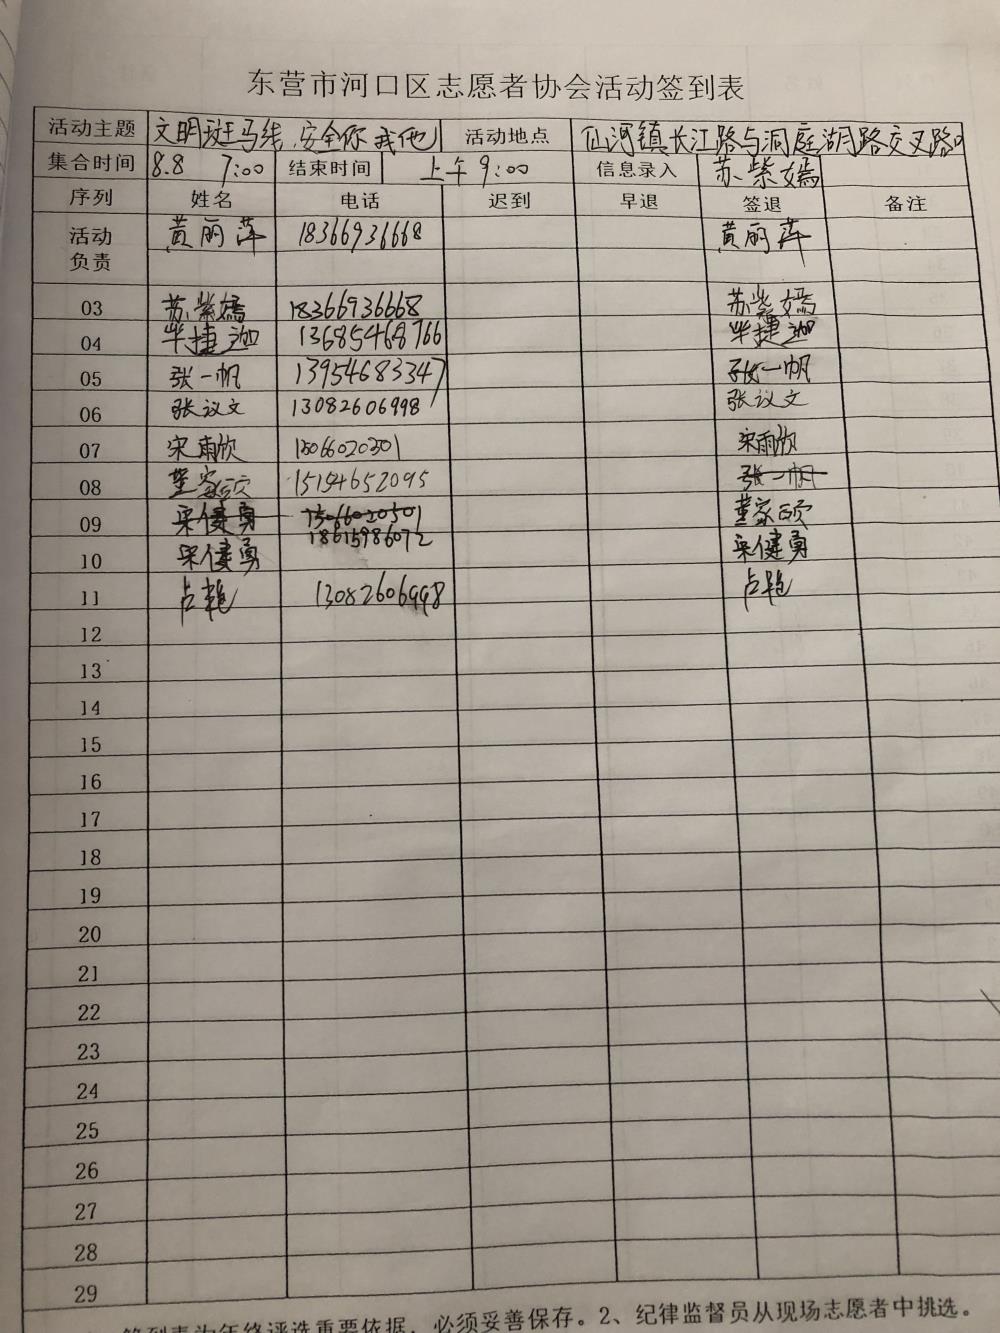 东营市河口区志愿者协会活动签到表
活动主题 文明斑马线,安全你我他 活动地点 仙河镇长江路与洞庭湖路交叉路口
集合时间 8.8 7:00 结束时间 上午9:00 信息录入 苏紫嫣
序列 姓名 电话 迟到 早退 签退 备注
活动负责 黄丽萍 18366936668 黄丽萍
03 苏紫嫣 18366936668 苏紫嫣
04 毕捷迦 13685468766 毕捷迦
05 张一帆 13954683347 张一帆
06 张议文 13082606998 张议文
07 宋雨欣 15066020301 宋雨欣
08 董家颐 15154652095 张一帆
09 宋健勇 15066020501 董家颐
10 宋健勇 18615986072 宋健勇
11 占艳 13082606998 占艳
12
13
14
15
16
17
18
19
20
21
22
23
24
25
26
27
28
29
签到表为年终评选重要依据,必须妥善保存。2、纪律监督员从现场志愿者中挑选。